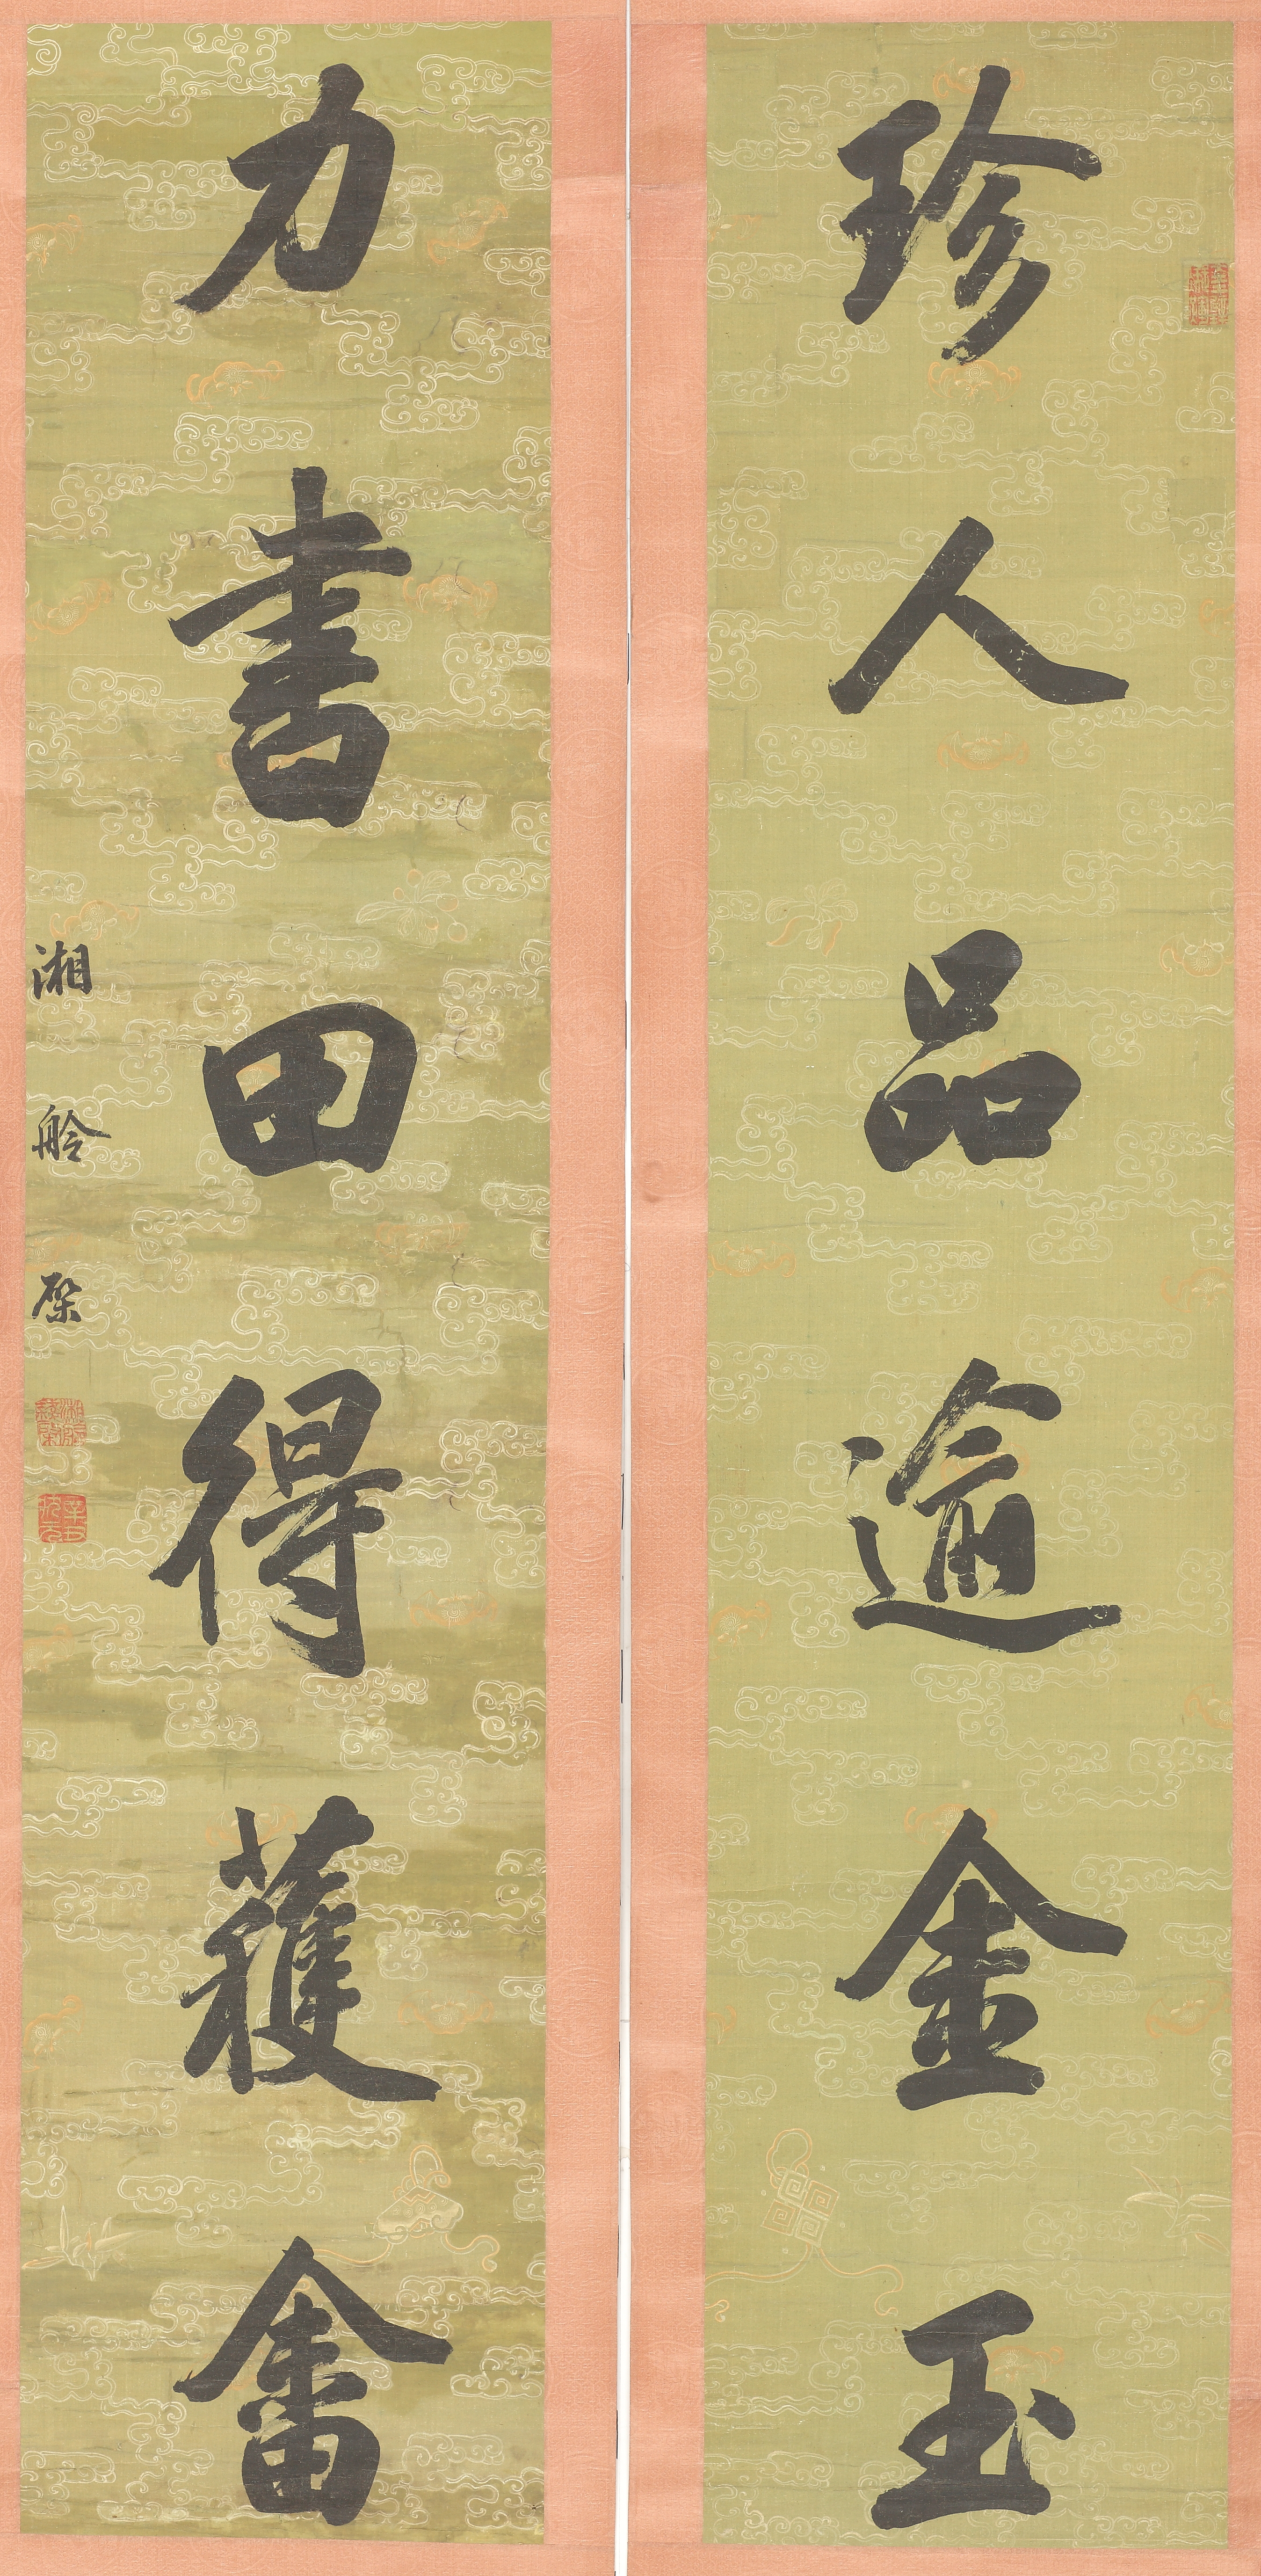 珍人品逾金玉
力書田得穫畬
湘舲棨
辛丑